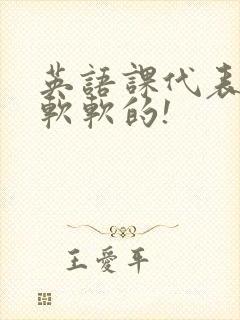 英語課代表
軟軟的!
王愛平